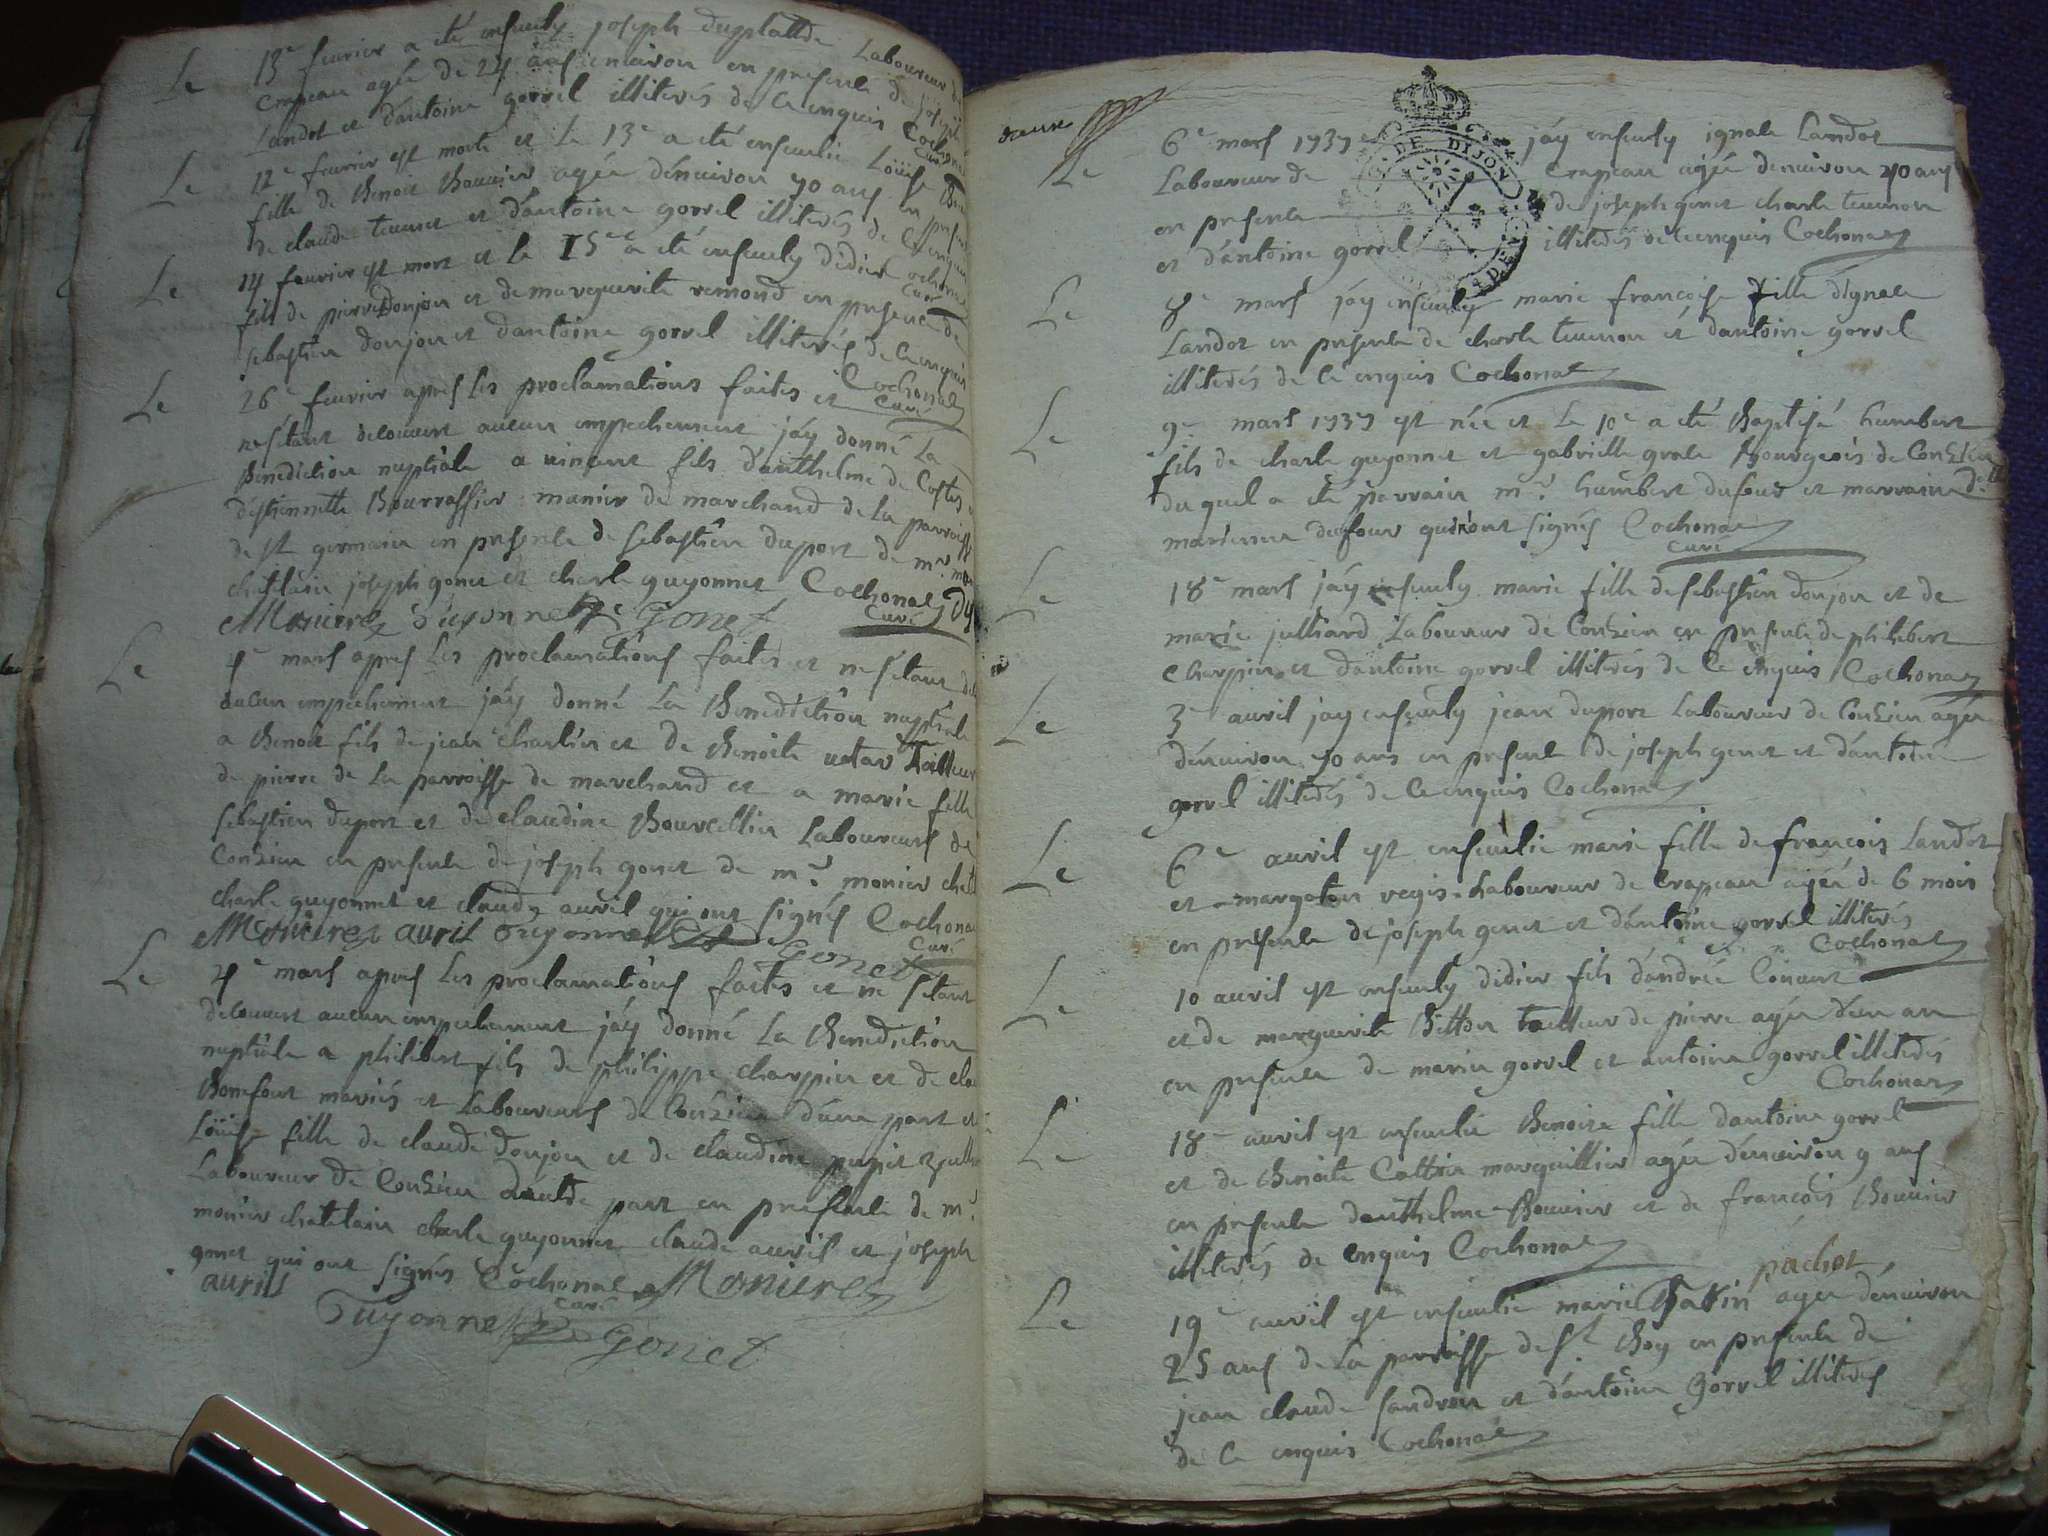 Le 13e feurier a eté enseuely joseph duplattde Laboureur de
Crapeau agée de 24 ans enuiron en presence de joseph
Landot et d'antoine gorrel illiterés de ce enquis Cochonat
Curé
Le 12e feurier est morte et le 13e a eté enseuelie Loüise
fille de Benoit Bouuier agée d'enuiron 70 ans en presence
de claude teuenet et d'antoine gorrel illiterés de ce enquis
Cochonat
Curé
Le 14 feurier est mort et le 15e a eté enseuely didier
fils de pierre Donjon et de marguerite remond en presence de
sebastien donjon et d'antoine gorrel illiterés de ce enquis
Cochonat
Curé
Le 26e feurier apres les proclamations faites et
ne s'etant decouuert aucun empechement j'ay donné La
Benediction nuptiale a uincent fils d'anthelme de Costes
d'estiennette Bourrassier manier de marchand de la parroisse
de st germain en presence de sebastien duport de mr
chatelain joseph gonet et charle guyonnet Cochonat
Curé
Monierez Guyonnet Gonet
Le 4e mars apres les proclamations faites et ne s'etant
aucun empechement j'ay donné La Benediction nuptiale
a Benoit fils de jean charlin et de Benoite Tailleur
de pierre de la parroisse de marchand et a marie fille
sebastien duport et de claudine Bourcellin Laboureurs de
Conzieu en presence de joseph gonet de mr monier
charle guyonnet et claude auril qui ont signés Cochonat
Curé
Monierez auril Guyonnet Gonet
Le 4e mars apres les proclamations faites et ne s'etant
decouuert aucun empechement j'ay donné La Benediction
nuptiale a philibert fils de philippe charpin et de
Bonefont mariés et Laboureurs de Conzieu d'une part et
Loüise fille de claude donjon et de claudine
Laboureur de Conzieu d'autde part en presence de mr
monier chatelain charle guyonnet claude auril et joseph
gonet qui ont signés Cochonat Monierez
curé
auril
Guyonnet Gonet
Le 6e mars 1737 j'ay enseuely ignace Landot
Laboureur de Crapeau agée d'enuiron 40 ans
en presence de joseph gonet charle teuenon
et d'antoine gorrel illiterés de ce enquis Cochonat
DE DIJON
Le 8e mars j'ay enseuely marie françoise fille d'ignace
Landot en presence de charle teuenon et d'antoine gorrel
illiterés de ce enquis Cochonat
Le 9e mars 1737 est née et le 10e a eté Baptisé humbert
fils de charle guyonnet et gabrielle grale Bourgeois de Conzieu
du quel a eté parrain mr humbert dufour et marraine Delle
marienne dufour qui ont signés Cochonat
Curé
Le 18e mars j'ay enseuely marie fille de sebastien donjon et de
marie julliard Laboureur de Conzieu en presence de philibert
charpin et d'antoine gorrel illiterés de ce enquis Cochonat
Le 3e auril j'ay enseuely jean duport Laboureur de Conzieu agée
d'enuiron 70 ans en presence de joseph gonet et d'antoine
gorrel illiterés de ce enquis Cochonat
Le 6e auril est enseuelie marie fille de françois Landot
et margoton regis Laboureur de Crapeau agée de 6 mois
en presence de joseph gonet et d'antoine gorrel illiterés
Cochonat
Le 10 auril est enseuely didier fils d'andrée Conuert
et de marguerite Bitton tailleur de pierre agée d'un an
en presence de marin gorrel et antoine gorrel illiterés
Cochonat
Le 18e auril est enseuelie Benoite fille d'antoine gorrel
et de Benoite Cattin marguillier agée d'enuiron 9 ans
en presence d'anthelme Bouuier et de françois Bouuier
illiterés de enquis Cochonat
pachot
Le 19e auril est enseuelie marie agée d'enuiron
25 ans de la parroisse de st Boy en presence de
jean claude landron et d'antoine Gorrel illiterés
de ce enquis Cochonat